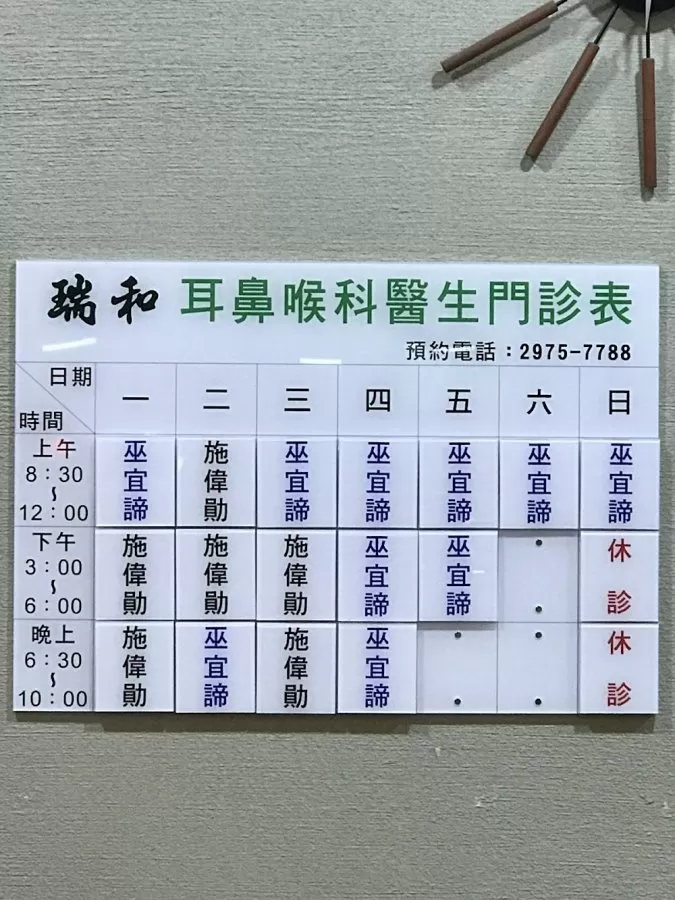 瑞和 耳鼻喉科醫生門診表
預約電話：2975-7788
日期 一 二 三 四 五 六 日
時間
上午 8：30～12：00 巫宜諦 施偉勛 巫宜諦 巫宜諦 巫宜諦 巫宜諦 巫宜諦
下午 3：00～6：00 施偉勛 施偉勛 施偉勛 巫宜諦 巫宜諦 休診
晚上 6：30～10：00 施偉勛 巫宜諦 施偉勛 巫宜諦 休診